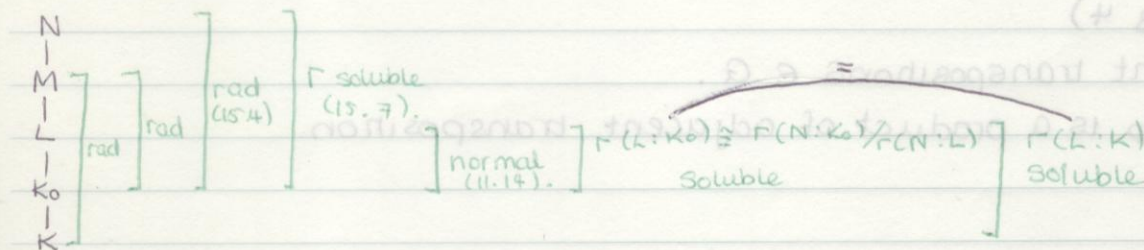 N
M
L
K₀
K
rad
rad
rad
(15.4)
Γ soluble
(15.7).
normal
(11.14).
Γ(L:K₀) ≅ Γ(N:K₀)/Γ(N:L)
soluble
=
Γ(L:K)
soluble